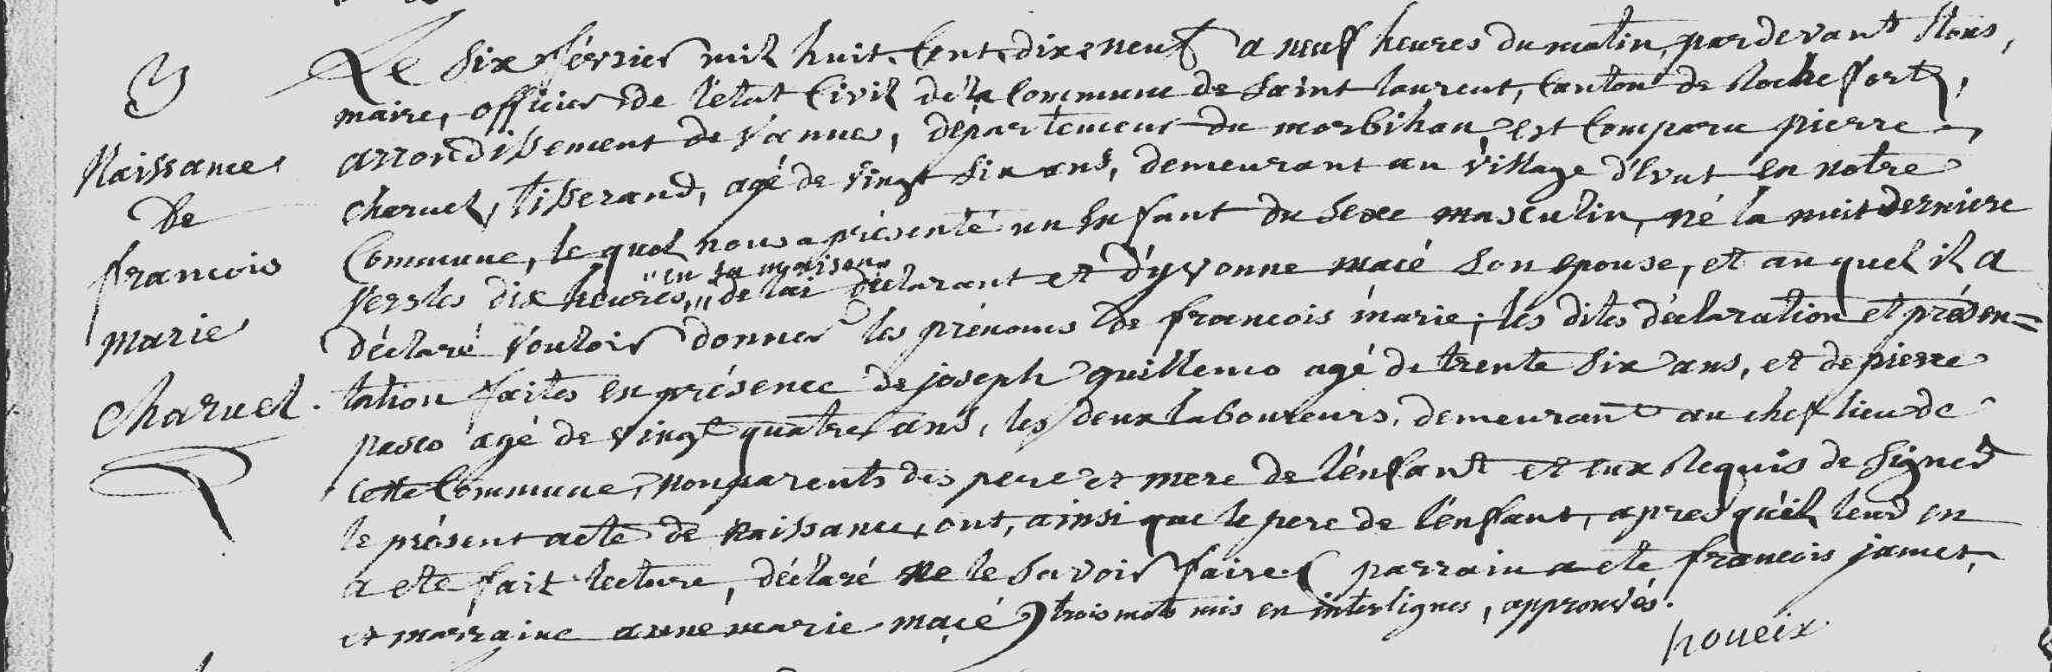 3
Naissance
De
francois
marie
Charuel.
Le six février mil huit. Cent. dix neuf a neuf heures du matin, pardevant Nous,
maire, officier de l'etat Civil de la Commune de Saint laurent, Canton de Rochefort,
arrondissement de vannes, département du morbihan, est Comparu pierre
cheruel, tisserand, agé de vingt six ans, demeurant au village d'Evut en notre
Commune, le quel nous a présenté un Enfant du Sexe masculin, né la nuit derniere
vers les dix heures, "en sa maison" de lui déclarant et d'yvonne macé son epouse, et auquel il a
déclaré vouloir donner les prénoms de francois marie; les dites déclaration et présen=
tation faites en présence de joseph guillemo agé de trente six ans, et de pierre
pasco agé de vingt quatre ans, les deux laboureurs, demeurant au chef lieu de
cette Commune, non parents des pere et mere de l'énfant et eux Requis de signer
le présent acte de naissance, ont, ainsi que le pere de l'énfant, apres qu'il leur en
a eté fait lecture, déclaré ne le savoir faire. (parrain a eté francois jamet,
et marraine anne marie macé) trois mots mis en interlignes, approuvés.
houeix.